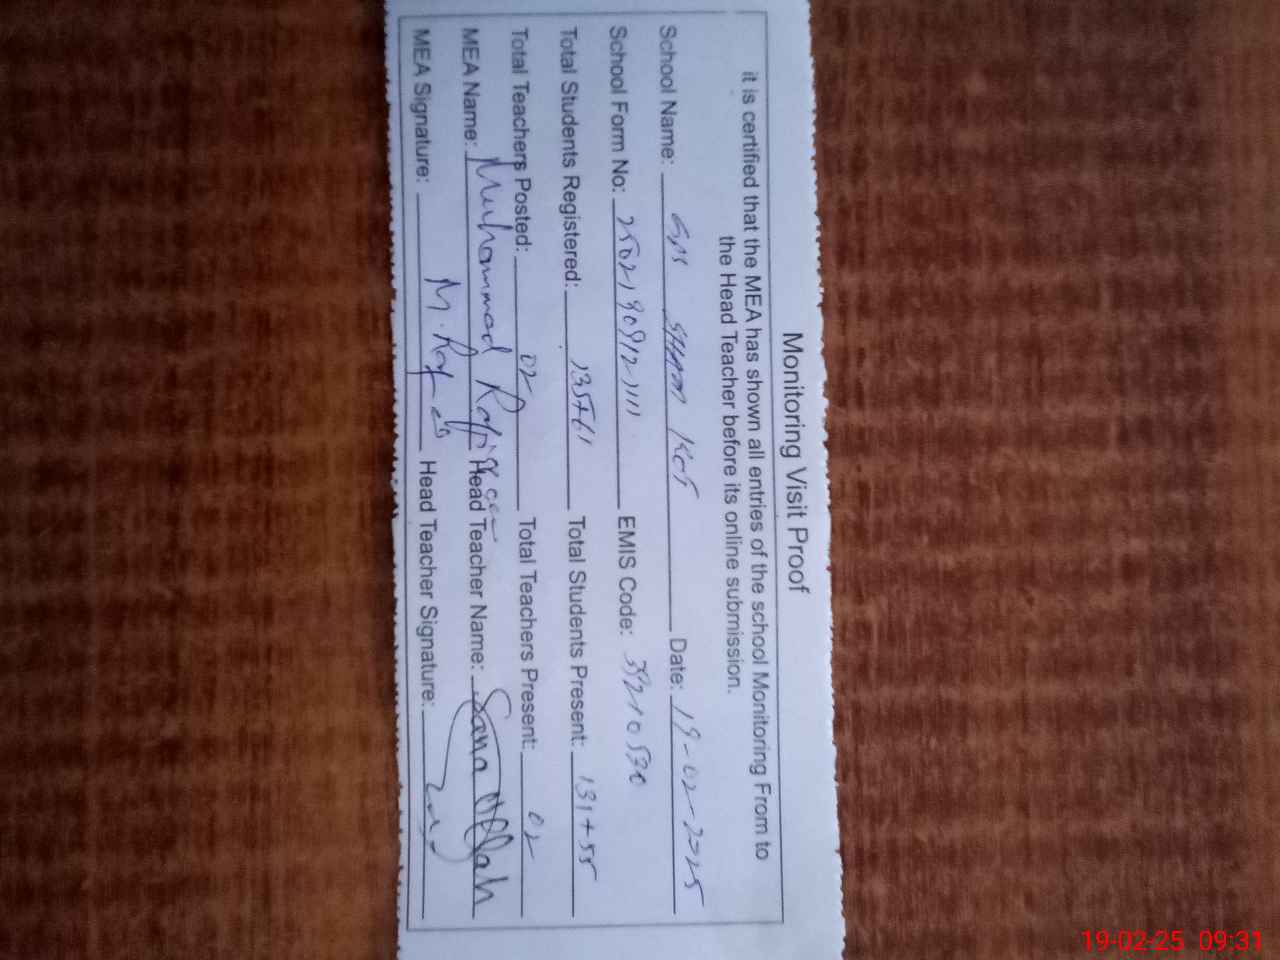 Monitoring Visit Proof
it is certified that the MEA has shown all entries of the school Monitoring From to
the Head Teacher before its online submission.
School Name: GPS Kot Date: 19-02-2025
School Form No: EMIS Code:
Total Students Registered: 135+61 Total Students Present: 131+55
Total Teachers Posted: 02 Total Teachers Present: 02
MEA Name: Muhammad Head Teacher Name: Sana Ullah
MEA Signature: Head Teacher Signature:
19-02-25 09:31